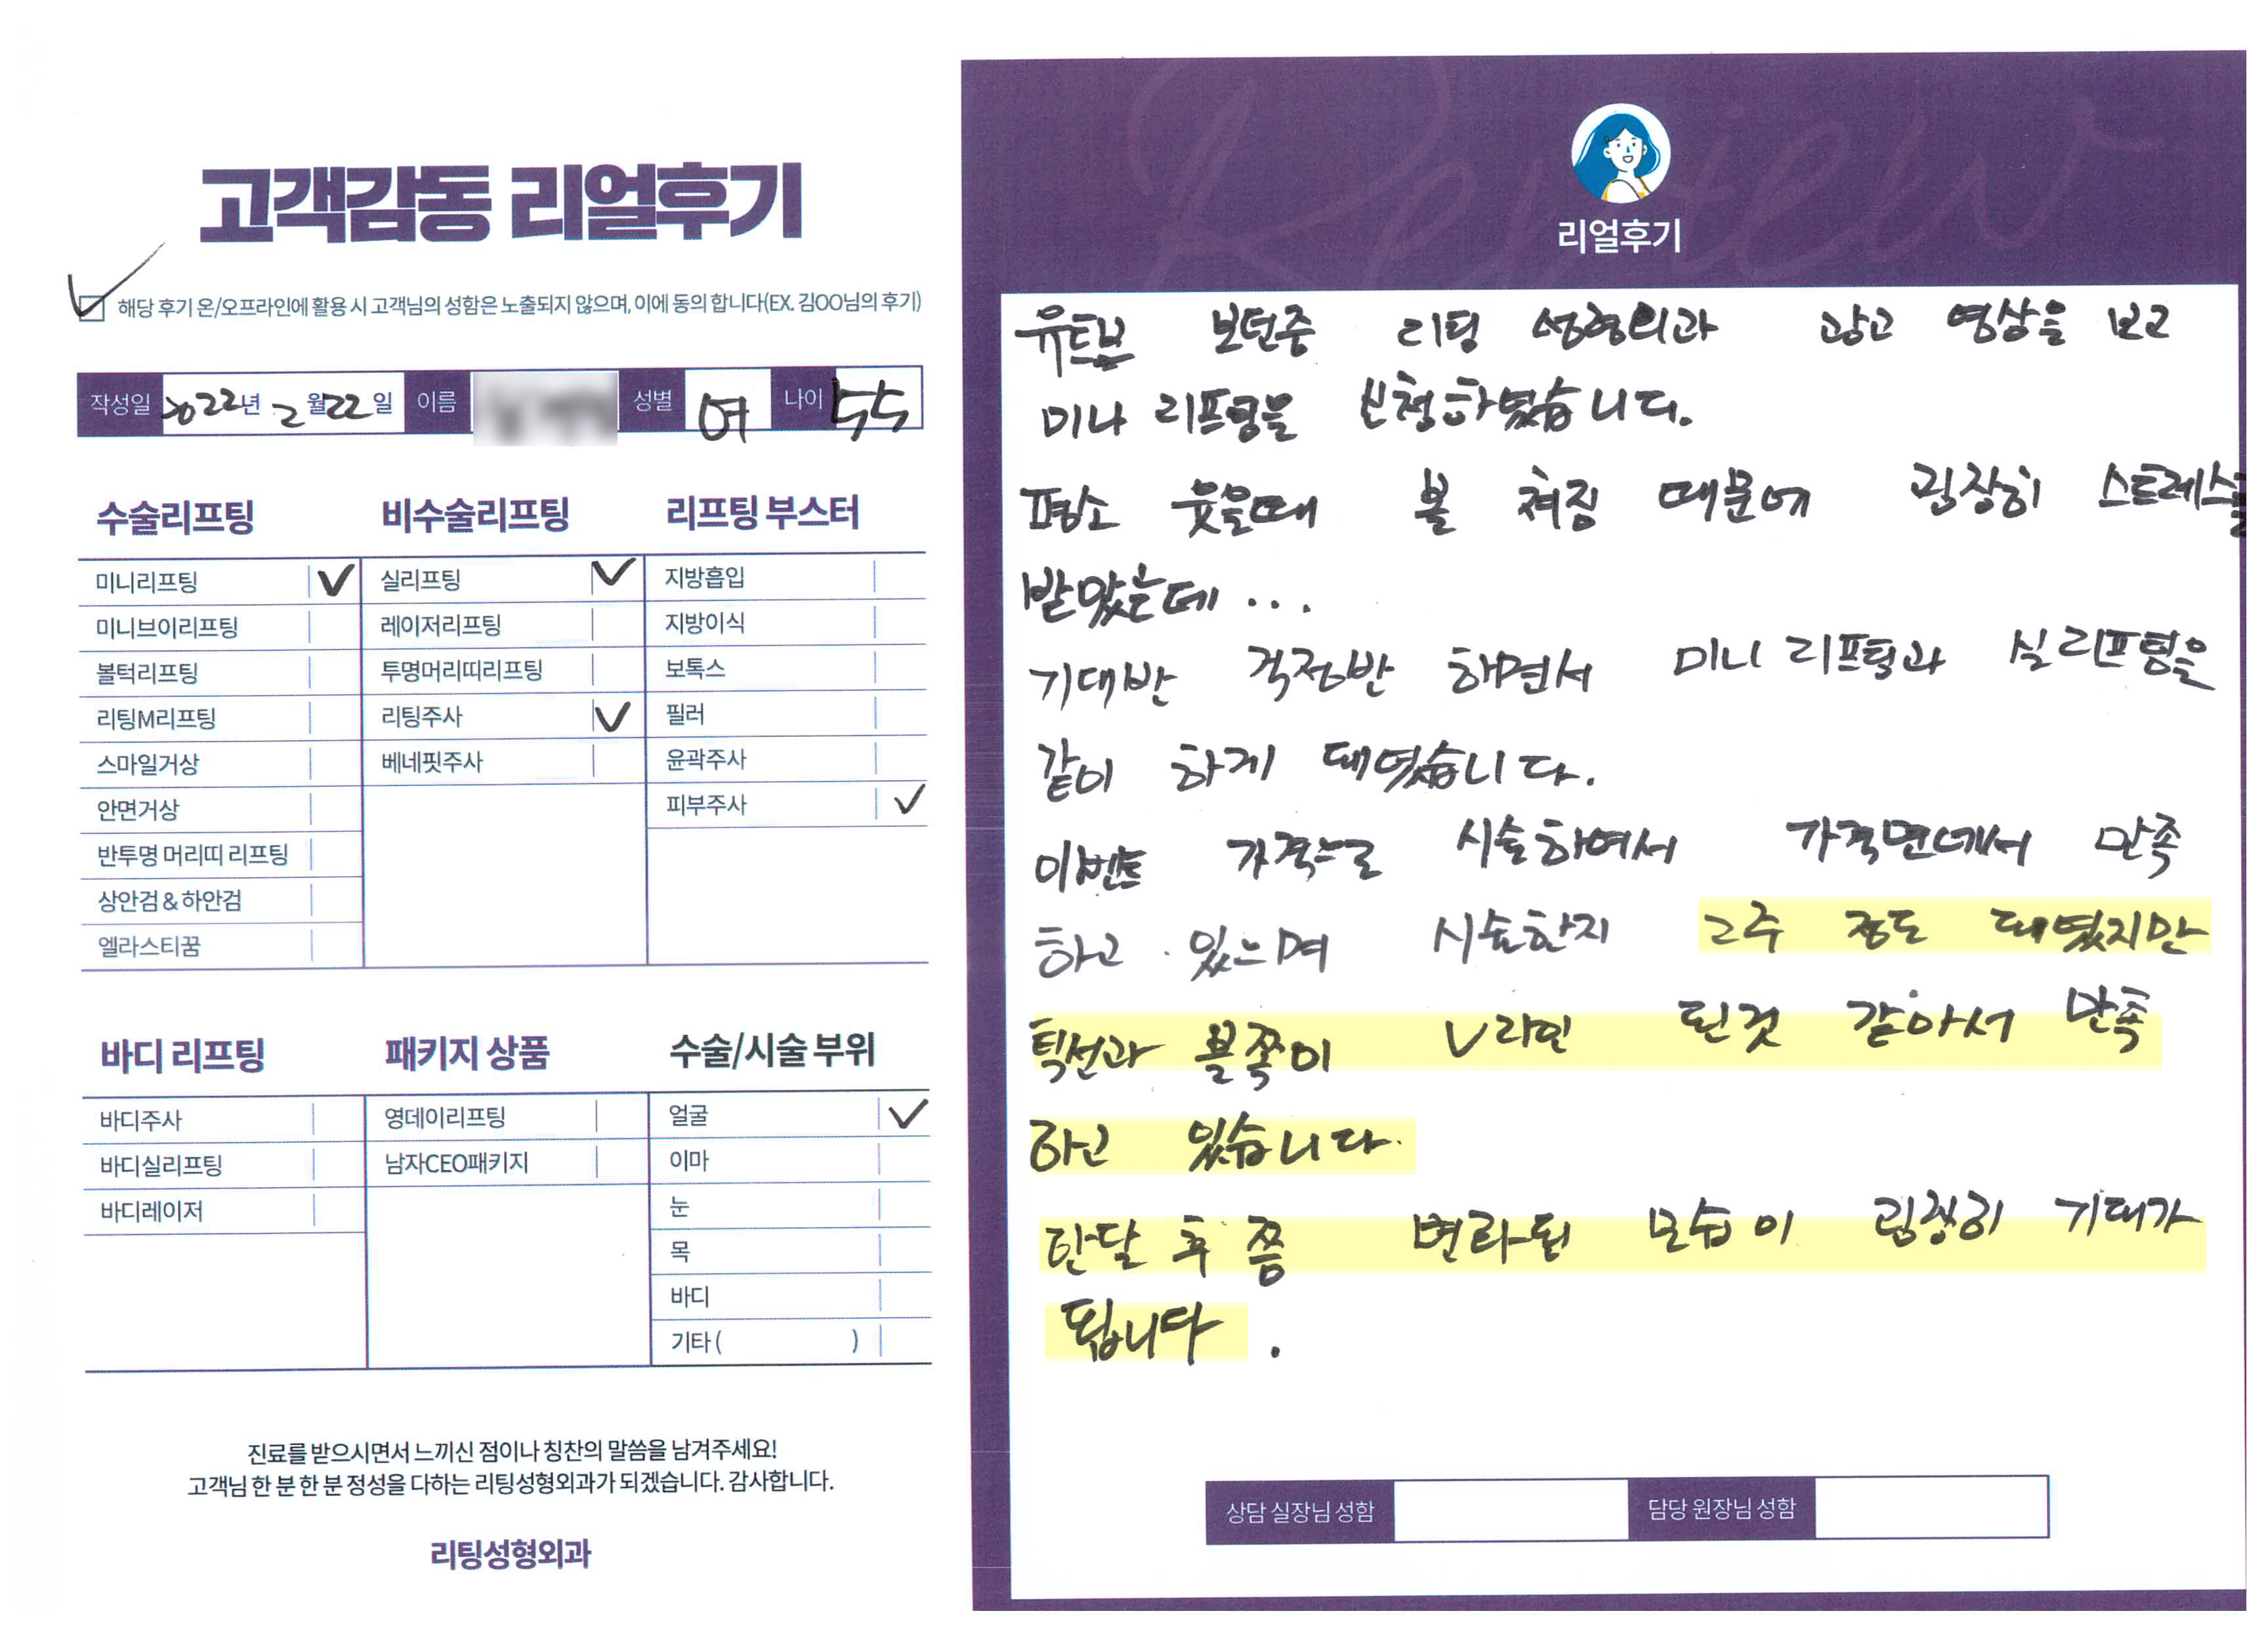 고객감동 리얼후기
해당 후기 온/오프라인에 활용 시 고객님의 성함은 노출되지 않으며, 이에 동의 합니다(EX. 김OO님의 후기)
작성일 2022년 2월 22일 이름 성별 여 나이 55
수술리프팅
미니리프팅 ✓
미니브이리프팅
볼턱리프팅
리팅M리프팅
스마일거상
안면거상
반투명 머리띠 리프팅
상안검 & 하안검
엘라스티꿈
비수술리프팅
실리프팅 ✓
레이저리프팅
투명머리띠리프팅
리팅주사 ✓
베네핏주사
리프팅 부스터
지방흡입
지방이식
보톡스
필러
윤곽주사
피부주사 ✓
바디 리프팅
바디주사
바디실리프팅
바디레이저
패키지 상품
영데이리프팅
남자CEO패키지
수술/시술 부위
얼굴 ✓
이마
눈
목
바디
기타 ( )
진료를 받으시면서 느끼신 점이나 칭찬의 말씀을 남겨주세요!
고객님 한 분 한 분 정성을 다하는 리팅성형외과가 되겠습니다. 감사합니다.
리팅성형외과
Review
리얼후기
유트브 보던중 리팅 성형외과 광고 영상을 보고
미나 리프팅을 신청하였습니다.
평소 웃을때 볼 쳐짐 때문에 굉장히 스트레스를
받았는데 ...
기대반 걱정반 하면서 미니 리프팅과 실 리프팅을
같이 하게 돼였습니다.
이벤트 가격으로 시술하여서 가격면에서 만족
하고 있느며 시술한지 2주 정도 돼였지만
턱선과 볼쪽이 V라인 된것 같아서 만족
하고 있습니다.
한달 후 쯤 변화된 모습이 굉장히 기대가
됩니다.
상담 실장님 성함
담당 원장님 성함